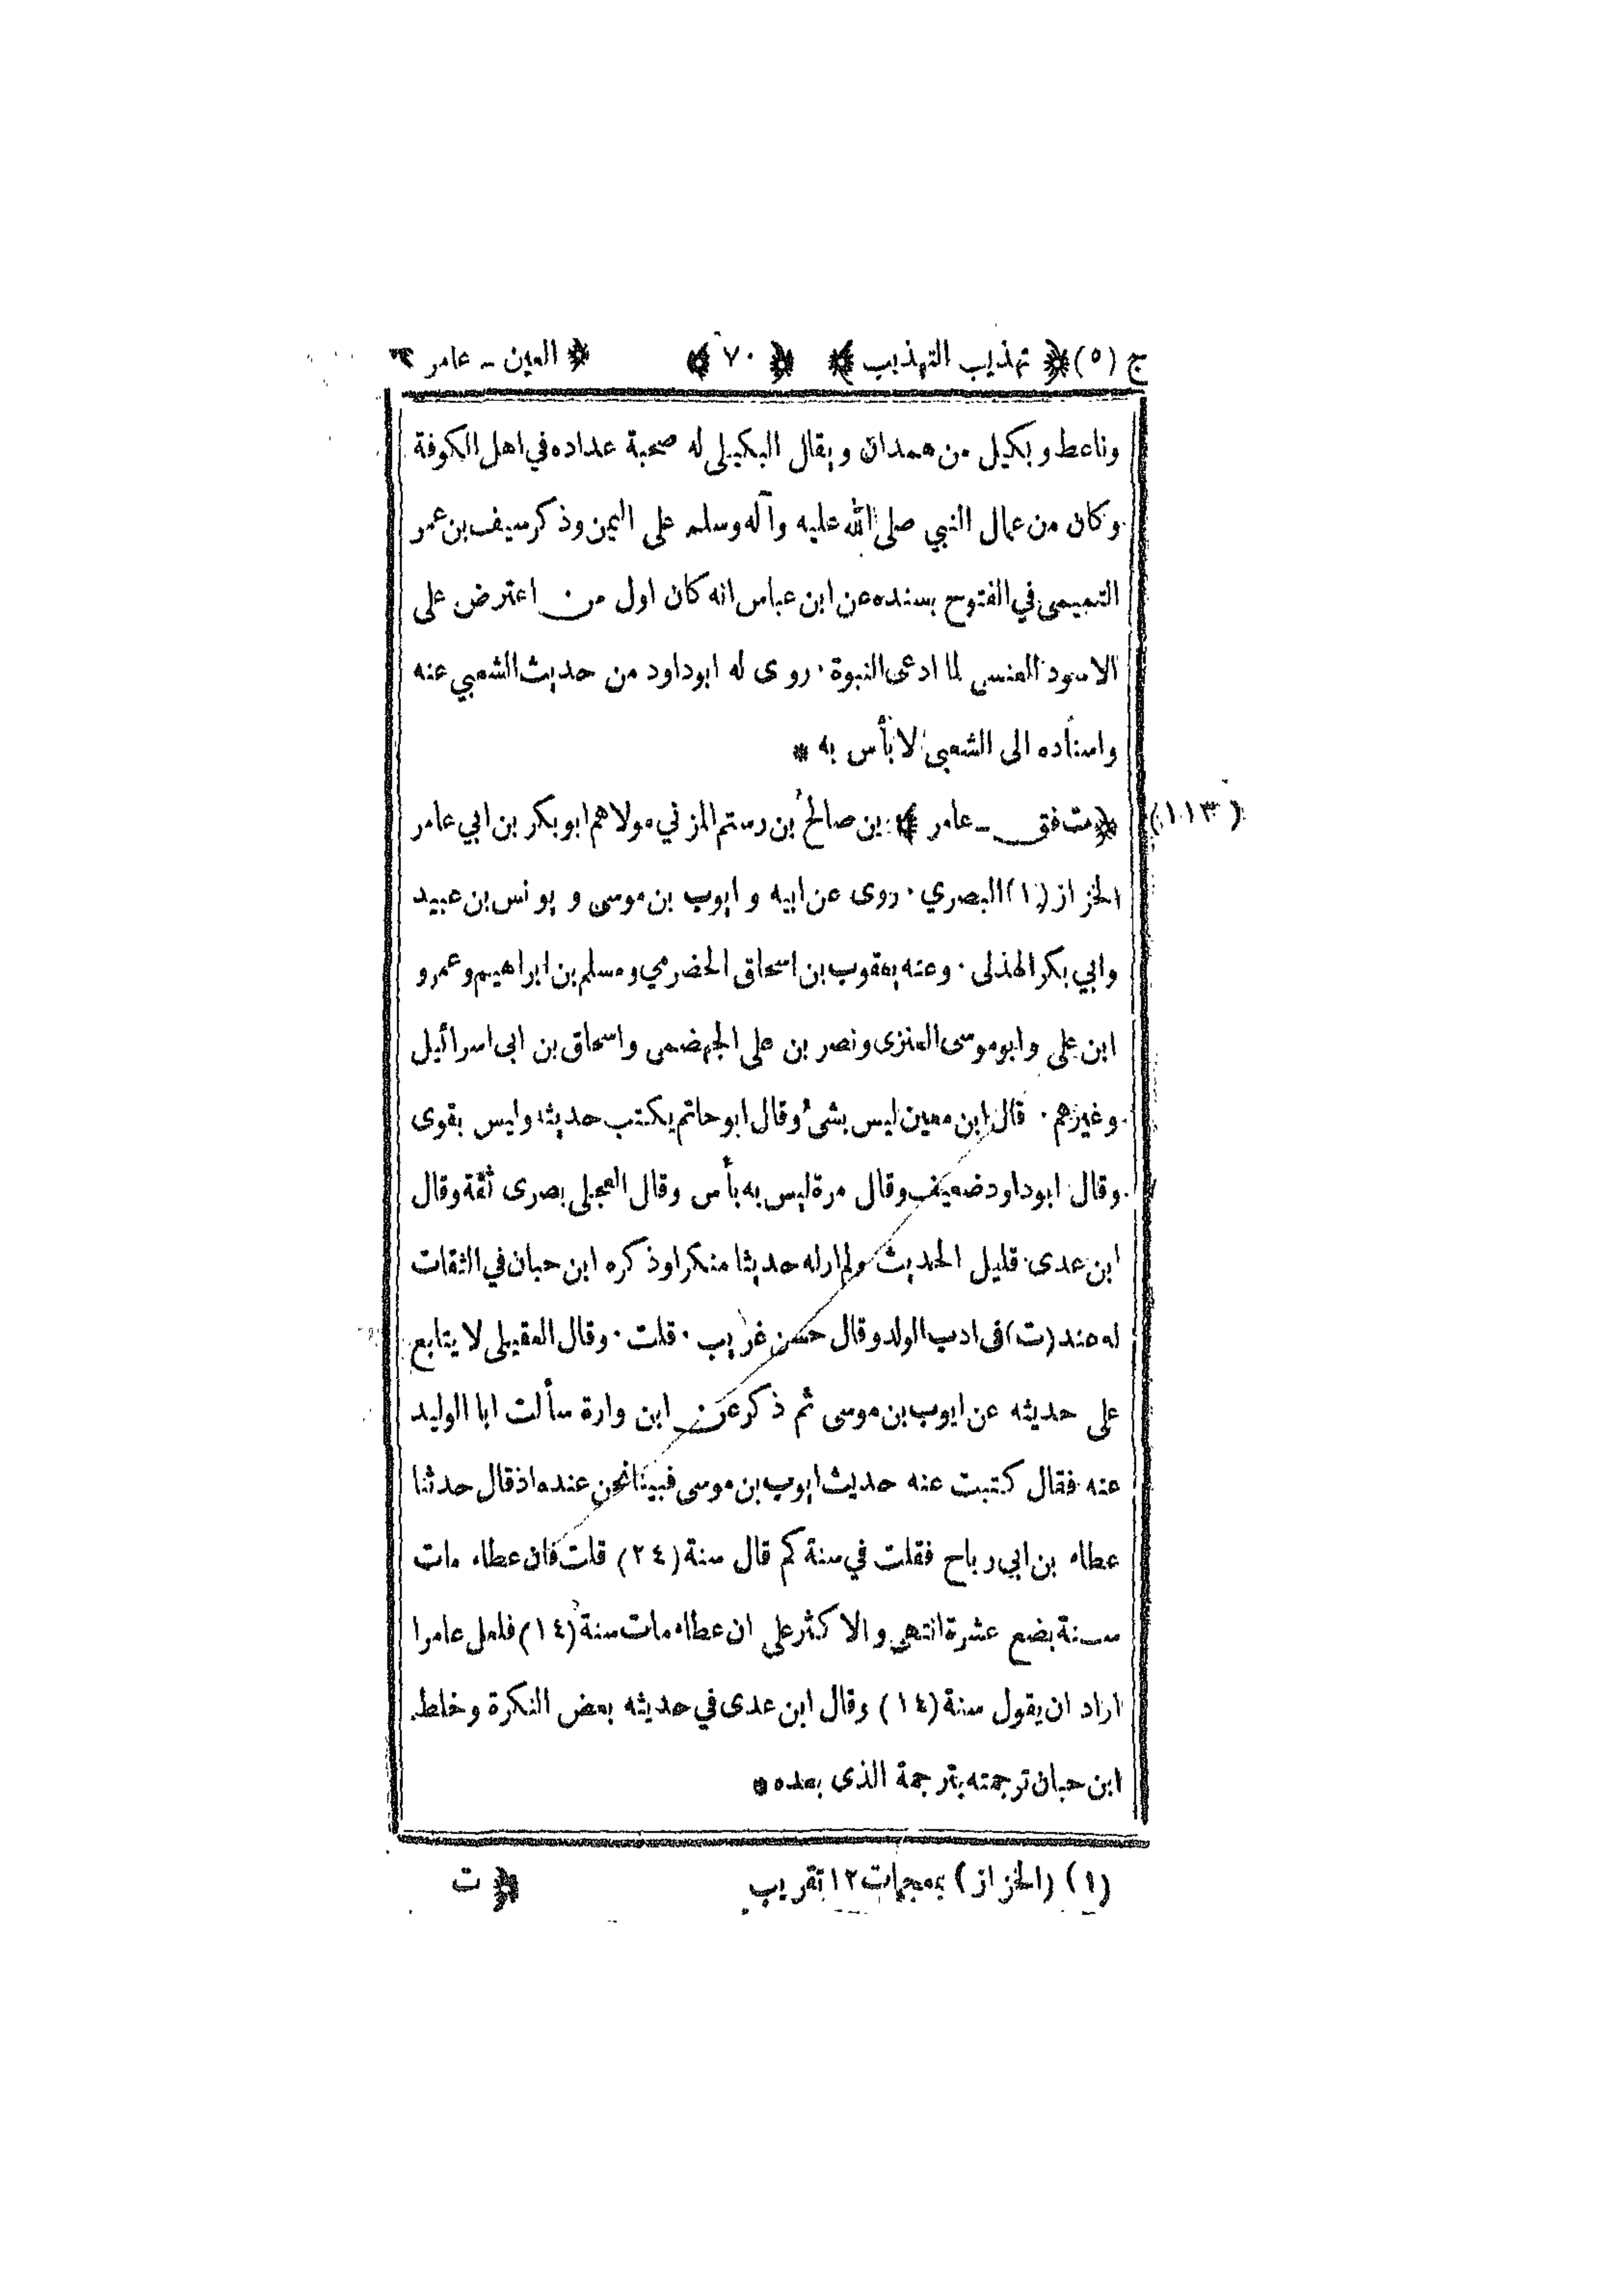 ج (٥) ﴿ تهذيب التهذيب ﴾ ﴿ ٧٠ ﴾ ﴿ العين ـ عامر ﴾
وناعط وبكيل من همدان ويقال البكيلى له صحبة عداده في اهل الكوفة
وكان من عمال النبي صلى الله عليه وآله وسلم على اليمن وذكر سيف بن عمر
التميمى في الفتوح بسنده عن ابن عباس انه كان اول من اعترض على
الاسود العنسى لما ادعى النبوة ٠ روى له ابوداود من حديث الشعبي عنه
واسناده الى الشعبى لا بأس به *
(١١٣) ﴿ مت فق ـ عامر ﴾ بن صالح بن رستم المزني مولاهم ابو بكر بن ابي عامر
الخزاز (١) البصري ٠ روى عن ابيه و ايوب بن موسى و يونس بن عبيد
وابي بكر الهذلى ٠ وعنه يعقوب بن اسحاق الحضرمي ومسلم بن ابراهيم وعمرو
ابن على وابو موسى العنزى ونصر بن على الجهضمى واسحاق بن ابى اسرائيل
وغيرهم ٠ قال ابن معين ليس بشئ وقال ابو حاتم يكتب حديثه وليس بقوى
وقال ابوداود ضعيف وقال مرة ليس به بأس وقال العجلى بصرى ثقة وقال
ابن عدى قليل الحديث ولم ار له حديثا منكرا وذكره ابن حبان في الثقات
له عند (ت) فى ادب الولد وقال حسن غريب ٠ قلت ٠ وقال العقيلى لا يتابع
على حديثه عن ايوب بن موسى ثم ذكر عن ابن وارة سألت ابا الوليد
عنه فقال كتبت عنه حديث ايوب بن موسى فبينا نحن عنده اذ قال حدثنا
عطاء بن ابي رباح فقلت في سنة كم قال سنة (٢٤) قلت فان عطاء مات
سنة بضع عشرة انتهى والاكثر على ان عطاء مات سنة (١٤) فلعل عامرا
اراد ان يقول سنة (١٤) وقال ابن عدى في حديثه بعض النكرة وخلط
ابن حبان ترجمته بترجمة الذى بعده *
(١) (الخزاز) بمعجمات ١٢ تقريب
﴿ ت